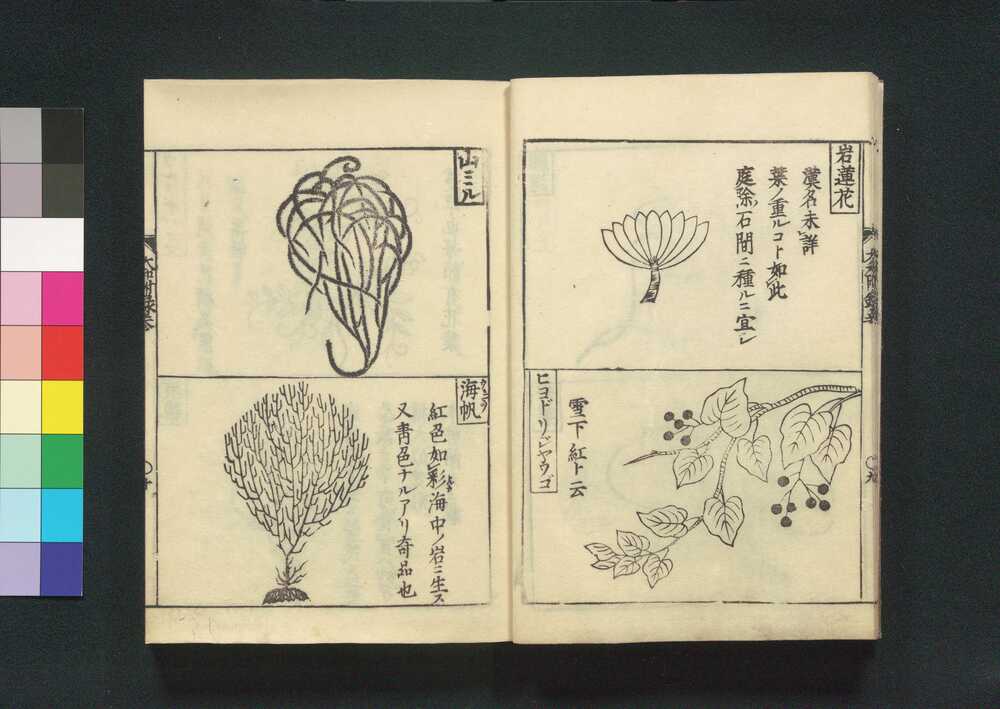 岩蓮花
漢名未詳
葉ノ重ルコト如此
庭除石間ニ種ルニ宜シ
ヒヨドリジヤウゴ
雪下紅ト云
山ミル
海帆
紅色如彩海中ノ岩ニ生ス
又青色ナルアリ奇品也